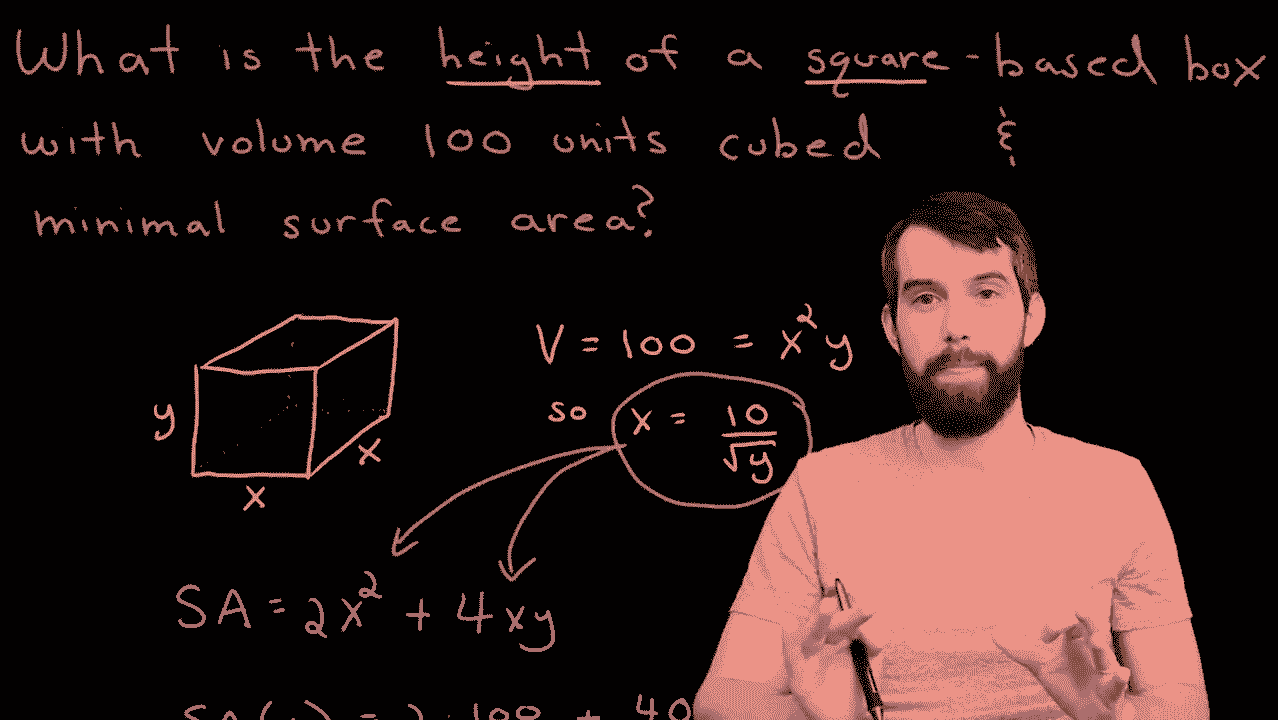 What is the height of a square-based box
with volume 100 units cubed &
minimal surface area?
V = 100 = x²y
so x = 10/√y
y
x
x
SA = 2x² + 4xy
SA(y) = 2·100 + 40